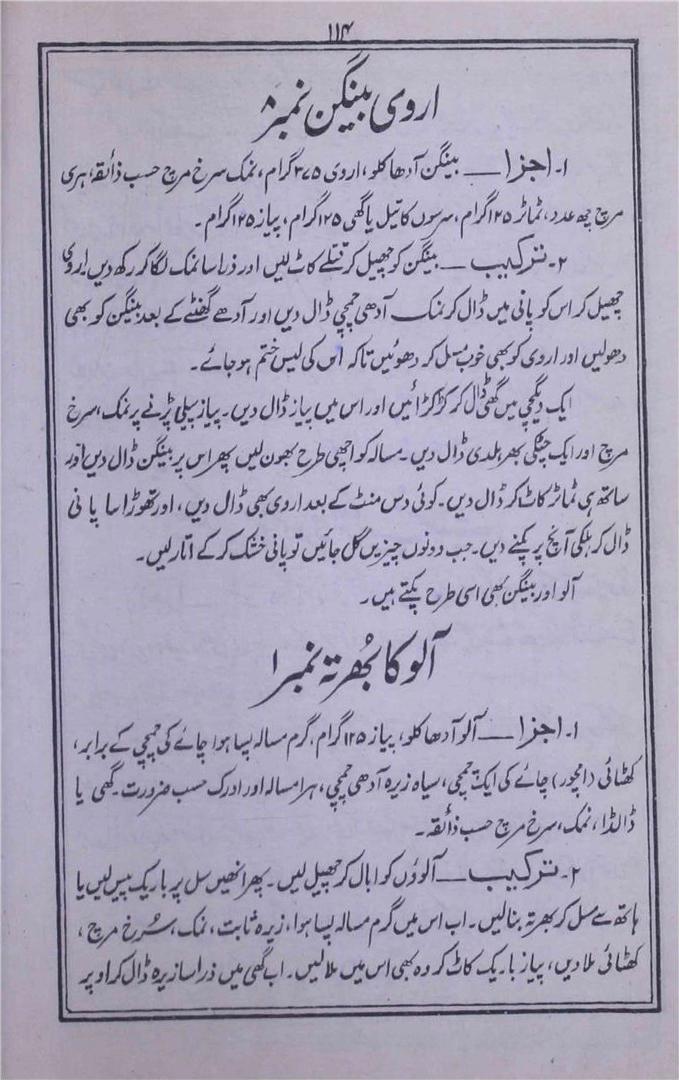 ۱۱۴
اروی بینگن نمبر ۸
۱۔ اجزا — بینگن آدھا کلو، اروی ۳۷۵ گرام، نمک سرخ مرچ حسب ذائقہ، ہری
مرچ چھ عدد، ٹماٹر ۱۲۵ گرام، سرسوں کا تیل یا گھی ۱۲۵ گرام، پیاز ۱۲۵ گرام۔
۲۔ ترکیب — بینگن کو چھیل کر قتلے کاٹ لیں اور ذرا سا نمک لگا کر رکھ دیں اروی
چھیل کر اس کو پانی میں ڈال کر نمک آدھی چمچی ڈال دیں اور آدھے گھنٹے کے بعد بینگن کو بھی
دھولیں اور اروی کو بھی خوب مسل کر دھوئیں تاکہ اس کی لیس ختم ہو جائے۔
ایک دیگچی میں گھی ڈال کر کڑکڑائیں اور اس میں پیاز ڈال دیں۔ پیاز پیلی پڑنے پر نمک، سرخ
مرچ اور ایک چٹکی بھر ہلدی ڈال دیں۔ مسالہ کو اچھی طرح بھون لیں پھر اس پر بینگن ڈال دیں اور
ساتھ ہی ٹماٹر کاٹ کر ڈال دیں۔ کوئی دس منٹ کے بعد اروی بھی ڈال دیں، اور تھوڑا سا پانی
ڈال کر ہلکی آنچ پر پکنے دیں۔ جب دونوں چیزیں گل جائیں تو پانی خشک کر کے اتارلیں۔
آلو اور بینگن بھی اسی طرح پکتے ہیں۔
آلو کا بھُرتہ نمبر ۱
۱۔ اجزا — آلو آدھا کلو، پیاز ۱۲۵ گرام، گرم مسالہ پسا ہوا چائے کی چمچی کے برابر،
کھٹائی (امچور) چائے کی ایک چمچی، سیاہ زیرہ آدھی چمچی، ہرا مسالہ اور ادرک حسب ضرورت۔ گھی یا
ڈالڈا، نمک، سرخ مرچ حسب ذائقہ۔
۲۔ ترکیب — آلوؤں کو ابال کر چھیل لیں۔ پھر انھیں سل پر باریک پیس لیں یا
ہاتھ سے مسل کر بھرتہ بنالیں۔ اب اس میں گرم مسالہ پسا ہوا، زیرہ ثابت، نمک، سُرخ مرچ،
کھٹائی ملا دیں، پیاز باریک کاٹ کر وہ بھی اس میں ملالیں۔ اب گھی میں ذرا سا زیرہ ڈال کر اوپر